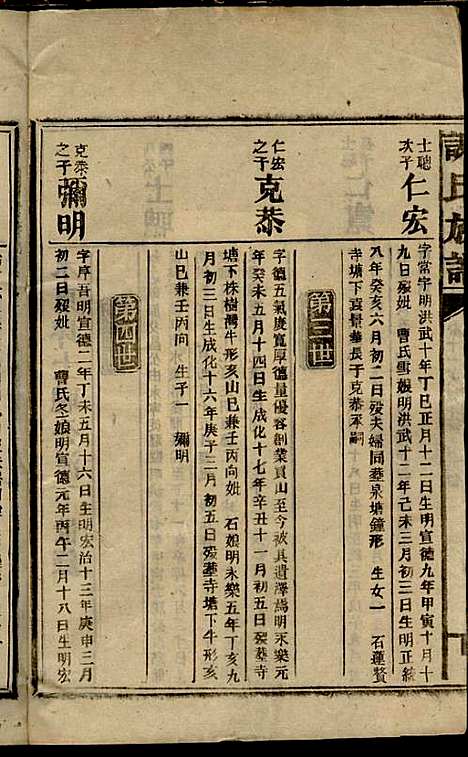 譚氏族譜
士聰次子仁宏
字常字明洪武十年丁巳正月十二日生明宣德九年甲寅十月十
九日歿妣　曹氏雪娘明洪武十二年己未三月初三日生明正統
八年癸亥六月初二日歿夫婦同墓泉塘鐘形　生女一　石蓮贅
寺塘下袁景華長子克恭承嗣
第三世
仁宏之子克恭
字德五氣度寬厚德量優容創業貫山至今被其遺澤焉明永樂元
年癸未五月十四日生成化十七年辛丑十一月初五日歿墓寺
塘下株樹灣牛形亥山巳兼壬丙向妣　石娘明永樂五年丁亥九
月初三日生成化十六年庚子三月初五日歿墓寺塘下牛形亥
山巳兼壬丙向　生子一　彌明
第四世
克恭之子彌明
字序吾明宣德二年丁未五月十六日生明宏治十三年庚申三月
初二日歿妣　曹氏冬娘明宣德元年丙午二月十八日生明宏